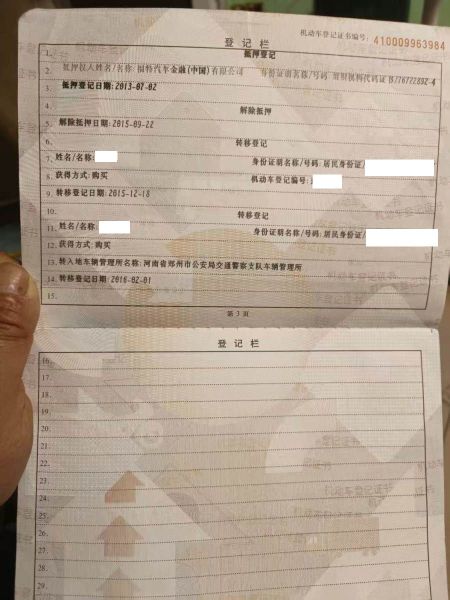 机动车登记证书编号: 410009963984
登记栏
1. 抵押登记
2. 抵押权人姓名/名称: 福特汽车金融(中国)有限公司 身份证明名称/号码: 组织机构代码证书/7178289Z-4
3. 抵押登记日期: 2013-07-02
4. 解除抵押
5. 解除抵押日期: 2015-09-22
6. 转移登记
7. 姓名/名称: 身份证明名称/号码: 居民身份证/
8. 获得方式: 购买 机动车登记编号:
9. 转移登记日期: 2015-12-18
10. 转移登记
11. 姓名/名称: 身份证明名称/号码: 居民身份证/
12. 获得方式: 购买
13. 转入地车辆管理所名称: 河南省郑州市公安局交通警察支队车辆管理所
14. 转移登记日期: 2016-02-01
15.
第3页
登记栏
16.
17.
18.
19.
20.
21.
22.
23.
24.
25.
26.
27.
28.
29.